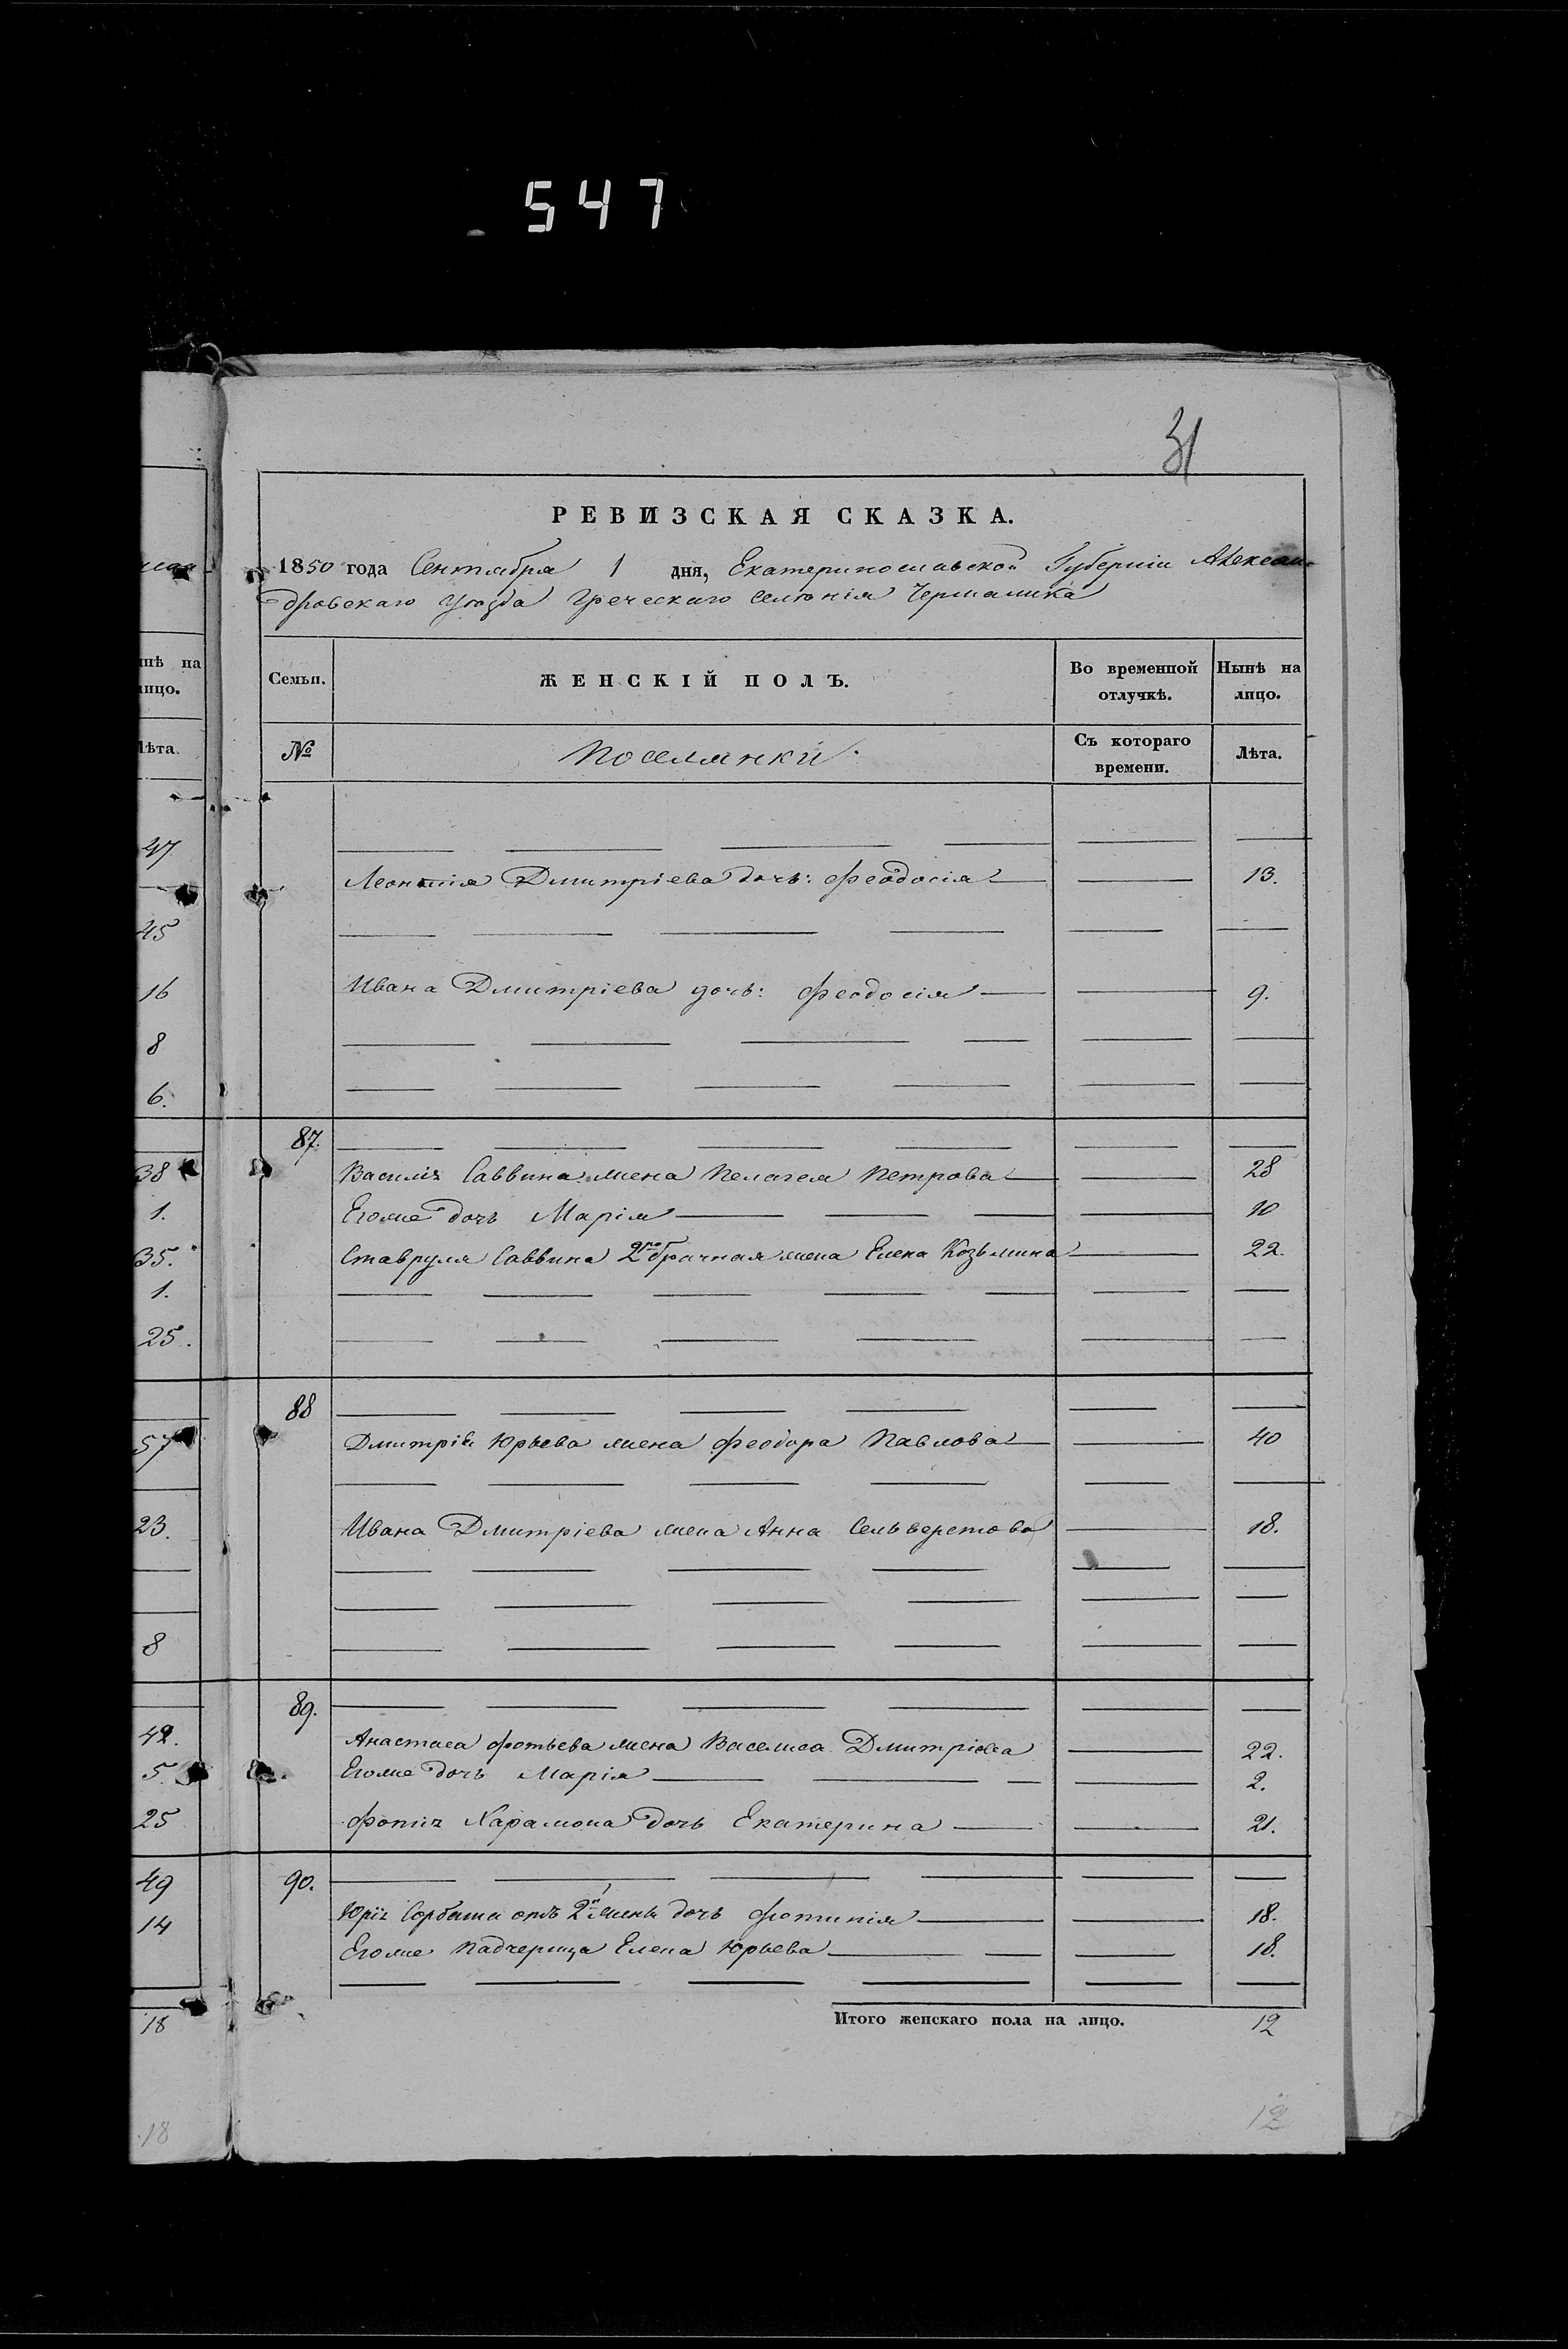 547
31
РЕВИЗСКАЯ СКАЗКА.
1850 года Сентября 1 дня, Екатеринославской Губерніи Алексан-
дровскаго Уѣзда Греческаго селенія Чермалика
Семьи.
ЖЕНСКІЙ ПОЛЪ.
Во временной отлучкѣ.
Нынѣ на лицо.
№
Поселянки.
Съ котораго времени.
Лѣта.
Леонтія Дмитріева дочь: Феодосія 13.
Ивана Дмитріева дочь: Феодосія 9.
87.
Василія Саввина жена Пелагея Петрова 28
Егоже дочь Марія 10
Ставруля Саввина 2го брачная жена Елена Козьмина 22.
88
Дмитрія Юрьева жена Феодора Павлова 40
Ивана Дмитріева жена Анна Сельверстова 18.
89.
Анастаса Фотьева жена Василиса Дмитріева 22.
Егоже дочь Марія 2.
Фотія Харамона дочь Екатерина 21.
90.
Юрія Сорбаша отъ 2й жены дочь Фотинія 18.
Егоже падчерица Елена Юрьева 18.
Итого женскаго пола на лицо. 12
12
нѣ на
лицо.
Лѣта.
47
45
16
8
6.
38
1.
35.
1.
25.
57
23.
8
42.
5.
25
49
14
18
18